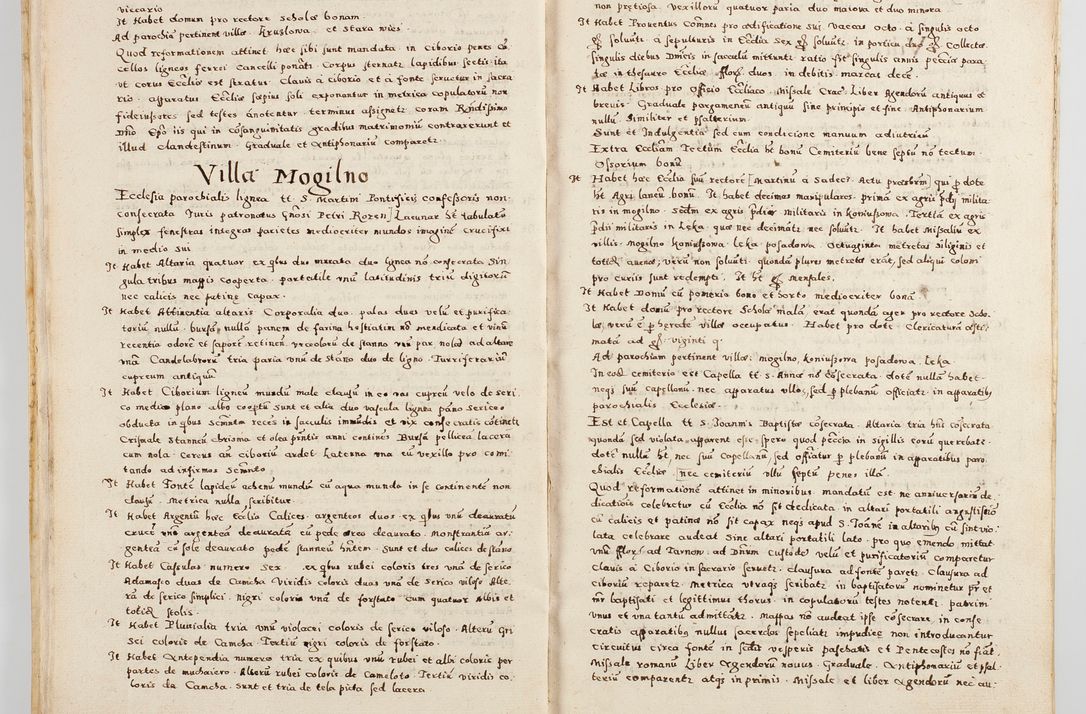 viccario
It Habet domum pro rectore scholæ bonam
Ad parochiā pertinent villæ. Kruzlowa. et Stara wies.
Quod reformationem attinet hæc sibi sunt mandata in ciborio penes cā
cellos ligneos ferrei cancelli ponātr. Corpus sternatr lapidibus sectis ita
ut corus Eccliæ est stratus Clavis à ciborio et à fonte servetur in sacra
rio. apparatus Eccliæ sæpius soli exponantur in metrica copulatorū non
fideiussores sed testes anotentur. terminus assignetr coram Rndissimo
Dño Epo iis qui in cōsanguinitatis gradibus matrimoniū contraxerunt et
illud clandestinum. Graduale et Antiphonariū comparetr.
Villa Mogilno
Ecclesia parochialis lignea tt S. Martini Pontificis confessoris non
consecrata Juris patronatus Gnosi Petri Rozen Lacunar ht tabulatū
simplex fenestras integras parietes mediocriter mundos imaginē crucifixi
in medio sui
It Habet Altaria quatuor ex qbus duo murata duo lignea nō consecrata sin
gula tribus mappis cooperta. portatile unū latitudinis triū digitorū
nec calicis nec patinæ capax.
It Habet Attinentia altaris Corporalia duo. palas duas velū et purifica
toriū nullū. bursā nullā panem de farina hostiatim nō mendicata et vinū
recentia odorē et saporē retinent. urceolorū de stanno unū par nolas ad altare
unā Candelabrorū tria paria unū de stāno duo de ligno. Turriferariū
cupreum antiquū
It Habet Ciborium ligneū mundū male clausū in eo vas cupreū velo de seri
co medio plano albo cooptū sunt et alia duo vascula lignea pāno serico
obducta in qbus Scramētn recēs in sacculis immūdis et vix consecratis cōtinetr
Crismale stanneū chrisma et olea prñtis anni continēs Bursā pelliceā lacerā
cum nola. Cereus an ciboriū ardet Laterna una cū vexillo pro comi
tando ad infirmos Scramēto
It Habet Fontē lapideū ahenū mundū cū aqua munda in se continentē non
clausū. Metrica nulla scribitur
It Habet Argentū hæc Ecclia Calices. argenteos duos. ex qbus unū deauratū
crucē unā argenteā deauratā cū pede æreo deaurato. Monstrantiā ar
genteā cū sole deaurato pede stanneū hñtem. sunt et duo calices de stāno.
It Habet Casulas numero sex. ex qbus rubei coloris tres una de serico
Adamasco duas de Camcha viridis coloris duas unā de serico viloso Alte
rā de serico simplici. Nigri coloris unā de forstato cum quatuor Albis et
totidē stolis.
It Habet Pluvialia tria unū violacei coloris de serico viloso. Alterū Gri
sei coloris de Camcha Tertiū nigri coloris de forstato.
It Habet Antependia numero tria ex quibus unū rubei et albi coloris per
partes de muchaiero. Alterū rubei coloris de cameloto. Tertiū viridis co
loris de Camcha. sunt et tria de tela picta sed lacera
non prætiosa. vexillorū quatuor paria duo maiora et duo minora.
It Habet Proventus Comnes pro ædificatione sui vaccas octo. à singulis octo
gr. solvuntr. à sepulturis in Ecclia sex gr. solvuntr. in portica duo gr. Collectæ
singulis diebus Dnicis in sacculū mittuntr ratio fit singulis annis peccūia para
tæ in thesauro Eccliæ flor. duos in debitis marcas decē.
It Habet Libros pro officio Eccliaco. Missale Crac. Liber Agendorū antiquus et
brevis. Graduale pargamenū antiquū sine principio et fine. Antiphonarium
nullū. similiter et psalterium.
Sunt et indulgentiæ sed cum condicione manuum adiutricū.
Extra Eccliam Tectum Ecclia ht bonū Cemiteriū bene septū nō tectum.
Ossorium bonū
It Habet hæc Ecclia suū rectorē [Martinū à Sadec. Actu præsbrm] qui p dote
ht Agri laneū bonū. It habet decimas manipulares. primā ex agris pdij milita
ris in mogilno. secdm ex agris pdii militaris in koniuszowa. Tertia ex agris
pdii militaris in Leka quæ nec decimātr nec solvūtr. It habet missaliū ex
villis. mogilno koniuszowa leka posadowa octuaginta metretas siliginis et
totidē avenæ; verū non solvūtr. quondā plures metretæ erāt, sed aliqui coloni
pro curiis sunt redempti. It ht gr. mensales.
It Habet Domū cū pomerio bono et horto mediocriter bonā
It Habet domū pro rectore Scholæ malā, erat quondā ager pro rectore scho
læ, verū ē p hærede villæ occupatus. Habet pro dote. Clericatura æsti
mata ad gr. viginti q.
Ad parochiam pertinent villæ: mogilno, koniuszowa posadowa. Leka.
In eod cemiterio est Capella tt S. Annæ nō cōsecrata. dotē nullā habet
neqs suū capellanū. nec apparatus ullos, sed p plebanū officiatr in apparatibs
parochialis Ecclesiæ.
Est et Capella tt S. Joannis Baptistæ cōsecrata. Altaria tria hñs cōsecrata
quondā sed violata apparent esse. spero quod peccūia in sigillis eorū querebatr
dotē nullā ht nec suū Capellanū, sed officiatur p plebanū in apparatibus paro
chialis Eccliæ [nec cemiteriū ullū septū penes illā.
Quod reformationē attinet in minoribus mandatū est. ne anniversariū de
dicationis celebretur cū Ecclia nō sit dedicata in altari portatili angustissimo
cū calicis et patinæ nō sit capax neqs apud S. Joānē in altaribs cū sint vio
lata celebrare audeat sine altari portatili lato. pro quo emendo mittat
unū flor. ad Tarnou. ad Dnum Custodē velū et purificatoriū comparetur
clavis à ciborio in sacrario servetr. clausura ad fontē paretr. Clausura ad
ciboriū reparetr. Metrica utraqs scribatr in baptisatorū nominetur pr et
mr baptisati et legittimus thorus. in copulatorū testes notentr. patrini
unus et una tantū admittātr. Mappas nō audeat ipse cōsecrare, in conse
cratis apparatibs nullus sacerdos sepeliatr impudicę non introducantur
Circuitus circa fontē in sadis vesperis paschatis et Pentecostes nō fiat
Missale romanū Liber Agendorū novus. Graduale. Antiphonariū et psal
teriū comparentr atqs in primis. Missale et liber Agendorū nec au: